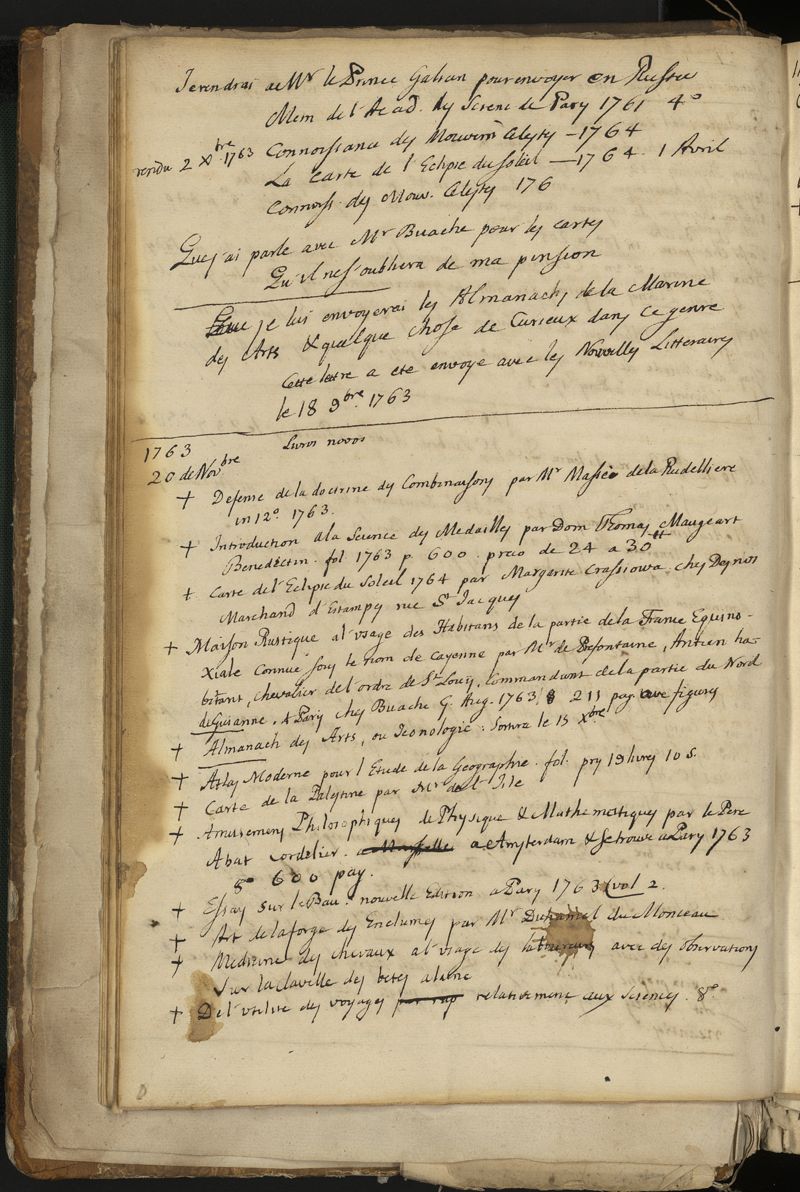 Je rendrai a Mr le Prince Galican pour envoyer en Russie
Mem de l'Acad. des Scienc de Pary 1761 4º
rendu 2 Xbre 1763 Connoissance des Mouvem Celestes - 1764
La Carte de l'Eclipse du Soleil — 1764. 1 Avril
Connoiss. des Mouv. Celestes 176
Que j'ai parle avec Mr Buache pour les cartes
Qu'il ne s'oubliera de ma pension
Que je lui envoyerai les Almanachs de la Marine
des Arts & quelque chose de Curieux dans ce genre
Cette lettre a ete envoye avec les Nouvelles Litteraires
le 18 9bre 1763
1763 Livros novos
20 de Novbre
+ Defense de la doctrine des Combinaisons par Mr Massée de la Rudelliere
in 12º 1763.
+ Introduction a la Science des Medailles par Dom Thomas Maugeart
Benedictin. fol 1763 p. 600. preco de 24 a 30 tt
+ Carte de l'Eclipse du Soleil 1764 par Margarite Crassiowa. Chez Desnos
Marchand d'Estampes rue St Jacques
+ Maison Rustique a l'usage des Habitans de la partie de la France Equino-
xiale connue sous le nom de Cayenne par Mr de Prefontaine, Antien ha-
bitant, Chevalier de l'ordre de St Louis, Commandant de la partie du Nord
de Guianne. A Paris chez Buache G. Aug. 1763. 8 211 pag. avec figures
+ Almanach des Arts, ou Iconologie: Sortira le 15 Xbre
+ Atlas Moderne pour l'Etude de la Geographie. fol. prix 19 livres 10 s.
+ Carte de la Palestine par Mr de l'Isle
+ Amusemens Philosophiques de Physique & Mathematiques par le Pere
Abat Cordelier. a Marseille a Amsterdam & se trouve a Pary 1763
8º 600 pag.
+ Essay sur le Beau. nouvelle Edition a Pary 1763 (vol 2.
+ Art de la forge des Enclumes par Mr Duhamel du Monceau
+ Medicine des chevaux a l'usage des laboureurs avec des observations
sur la clavelle des betes a laine
+ De l'utilite des voyages par rap relativement aux Sciences. 8º